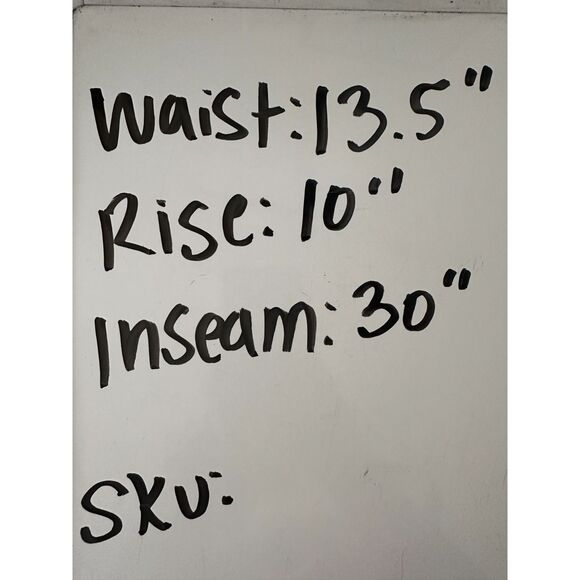 Waist: 13.5"
Rise: 10"
Inseam: 30"
SKU: